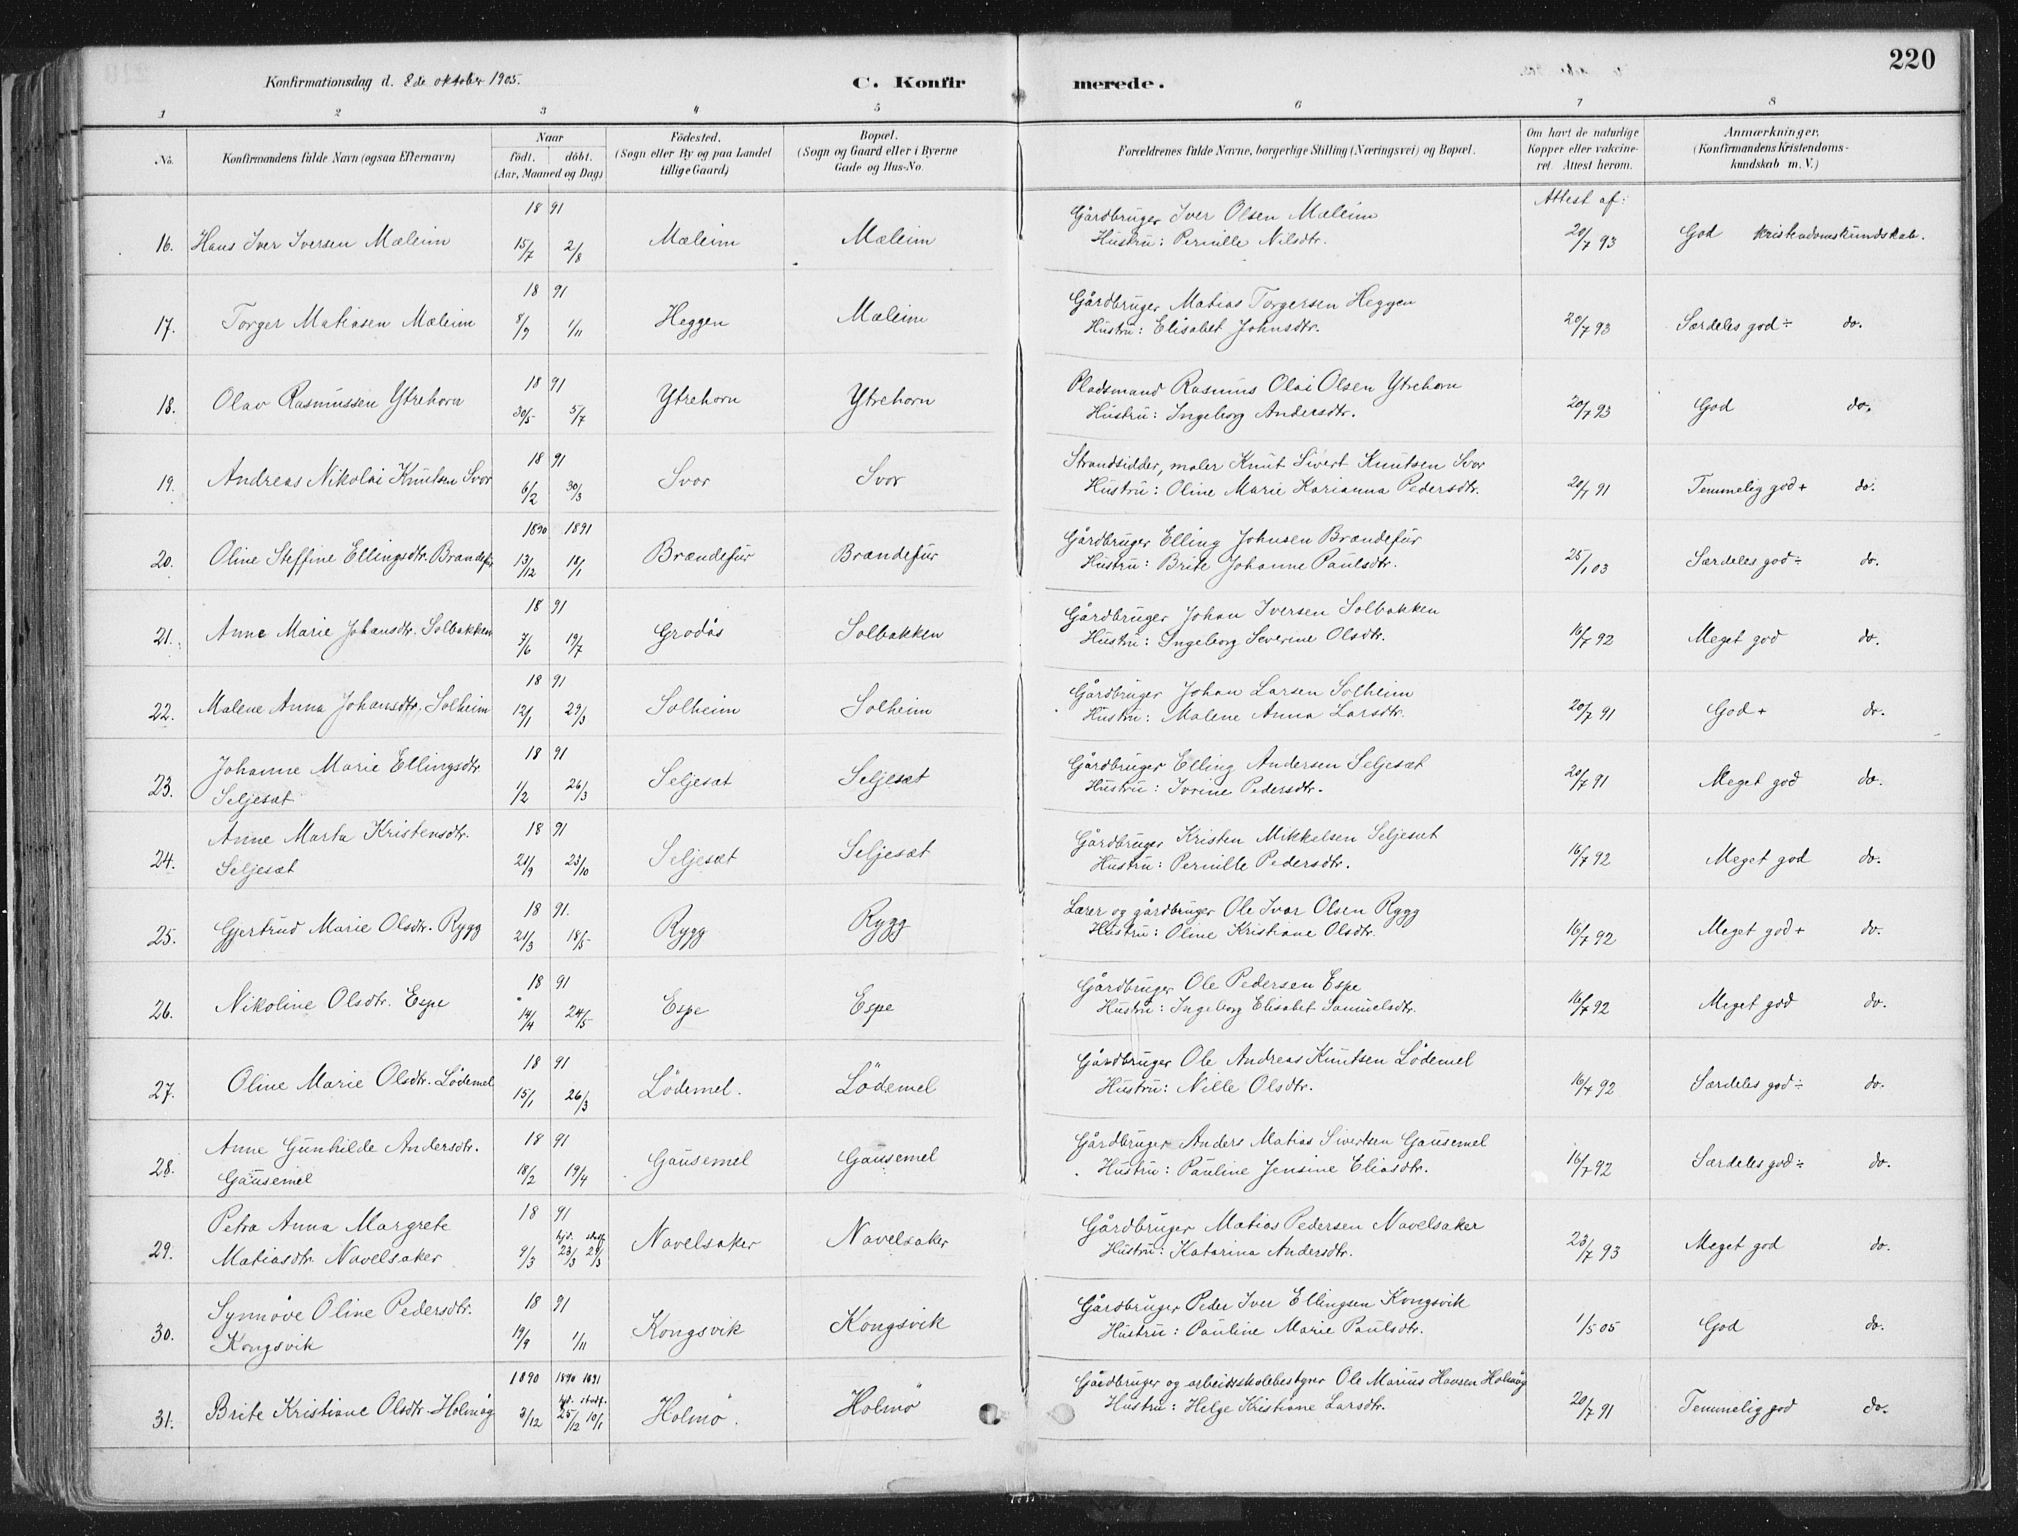 220
Konfirmationsdag d. 8de oktober 1905.
C. Konfirmerede.
1 2 3 4 5 6 7 8
No.
Konfirmandens fulde Navn (ogsaa Efternavn)
Naar
født. døbt.
(Aar, Maaned og Dag)
Födested.
(Sogn eller By og paa Landet
tillige Gaard)
Bopæl.
(Sogn og Gaard eller i Byerne
Gade og Hus-No.
Forældrenes fulde Navne, borgerlige Stilling (Næringsvei) og Bopæl.
Om havt de naturlige
Kopper eller vakcine-
ret. Attest herom.
Anmærkninger.
(Konfirmandens Kristendoms-
kundskab m. V.)
Attest af:
18 91
16. Hans Iver Iversen Mæleim 15/7 2/8 Mæleim Mæleim Gårdbruger Iver Olsen Mæleim
Hustru: Pernille Nilsdtr. 20/7 93 God kristendomskundskab.
18 91
17. Torger Matiasen Mæleim 8/9 1/11 Heggen Mæleim Gårdbruger Matias Torgersen Heggen
Hustru: Elisabet Johnsdtr. 20/7 93 Særdeles god ÷ do.
18 91
18. Olav Rasmussen Ytrehorn 30/5 5/7 Ytrehorn Ytrehorn Pladsmand Rasmus Olai Olsen Ytrehorn
Hustru: Ingeborg Andersdtr. 20/7 93 God do.
18 91
19. Andreas Nikolai Knutsen Svor 6/2 30/3 Svor Svor Strandsidder, maler Knut Sivert Knutsen Svor
Hustru: Oline Marie Karianna Pedersdtr. 20/7 91 Temmelig god + do.
1890 1891
20. Oline Steffine Ellingsdtr. Brændefur 13/12 18/1 Brændefur Brændefur Gårdbruger Elling Johnsen Brændefur
Hustru: Brite Johanne Paulsdtr. 25/1 03 Særdeles god ÷ do.
18 91
21. Anne Marie Johansdtr. Solbakken 7/6 19/7 Grodås Solbakken Gårdbruger Johan Iversen Solbakken
Hustru: Ingeborg Severine Olsdtr. 16/7 92 Meget god do.
18 91
22. Malene Anna Johansdtr. Solheim 12/1 29/3 Solheim Solheim Gårdbruger Johan Larsen Solheim
Hustru: Malene Anna Larsdtr. 20/7 91 God + do.
18 91
23. Johanne Marie Ellingsdtr.
Seljesæt 1/2 26/3 Seljesæt Seljesæt Gårdbruger Elling Andersen Seljesæt
Hustru: Ivrine Pedersdtr. 20/7 91 Meget god do.
18 91
24. Anne Marta Kristensdtr.
Seljesæt 21/9 23/10 Seljesæt Seljesæt Gårdbruger Kristen Mikkelsen Seljesæt
Hustru: Pernille Pedersdtr. 16/7 92 Meget god do.
18 91.
25. Gjertrud Marie Olsdtr. Rygg 21/3 18/5 Rygg Rygg Lærer og gårdbruger Ole Ivar Olsen Rygg
Hustru: Oline Kristiane Olsdtr. 16/7 92 Meget god + do.
18 91
26. Nikoline Olsdtr. Espe 14/4 24/5 Espe Espe Gårdbruger Ole Pedersen Espe
Hustru: Ingeborg Elisabet Samuelsdtr. 16/7 92 Meget god do.
18 91
27. Oline Marie Olsdtr. Lødemel 15/1 26/3 Lødemel. Lødemel Gårdbruger Ole Andreas Knutsen Lødemel
Hustru: Nille Olsdtr. 16/7 92 Særdeles god ÷ do.
18 91
28. Anne Gunhilde Andersdtr.
Gausemel 18/2 19/4 Gausemel Gausemel Gårdbruger Anders Matias Sivertsen Gausemel
Hustru: Pauline Jensine Eliasdtr. 16/7 92 Særdeles god ÷ do.
18 91
29. Petra Anna Margrete
Matiasdtr. Navelsaker 9/3 hjd. 23/3 stadf. 29/3 Navelsaker Navelsaker Gårdbruger Matias Pedersen Navelsaker
Hustru: Katarina Andersdtr. 23/7 93 Meget god do.
18 91
30. Synnøve Oline Pedersdtr.
Kongsvik 19/9 1/11 Kongsvik Kongsvik Gårdbruger Peder Iver Ellingsen Kongsvik
Hustru: Pauline Marie Paulsdtr. 1/5 05 God do.
1890 1890 1891
31. Brite Kristiane Olsdtr. Holmøy 3/12 hjd. 25/12 stadf. 10/1 Holmø. Holmø Gårdbruger og arbeidsskolebestyrer Ole Marius Hansen Holmøy
Hustru: Helge Kristiane Larsdtr. 20/7 91 Temmelig god do.